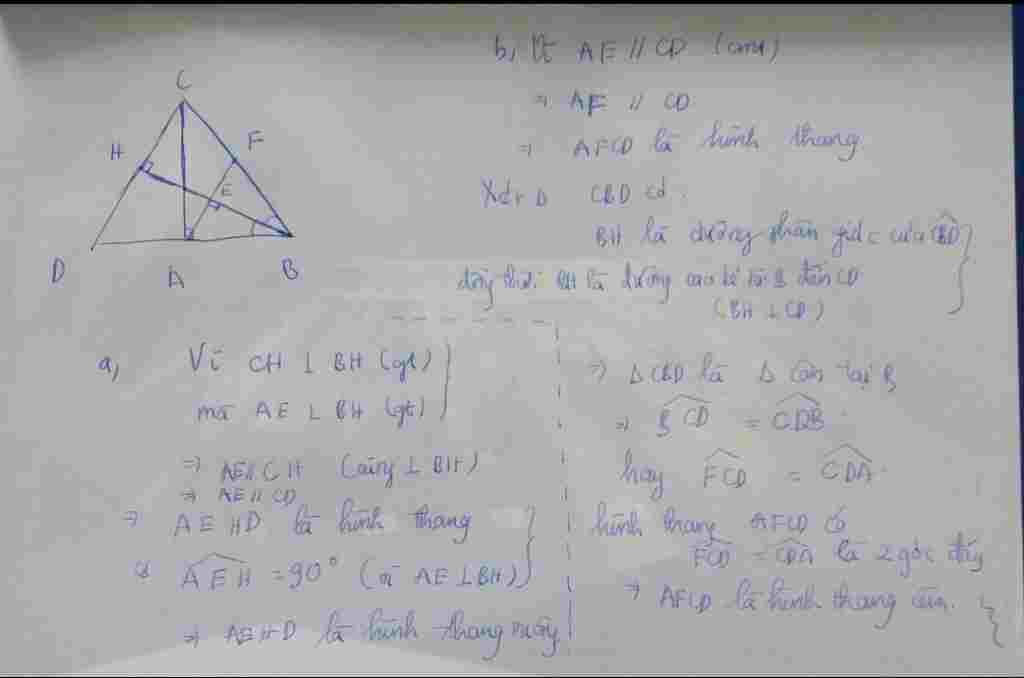 C
H
F
E
D
A
B
a, Vì CH ⊥ BH (gt)
mà AE ⊥ BH (gt)
⇒ AE // CH (cùng ⊥ BH)
⇒ AE // CD
⇒ AEHD là hình thang
AEH = 90° (vì AE ⊥ BH)
⇒ AEHD là hình thang vuông
b, Vì AE // CD (cmt)
⇒ AF // CD
⇒ AFCD là hình thang
Xét Δ CBD có
BH là đường phân giác của CBD
đồng thời BH là đường cao kẻ từ B đến CD
(BH ⊥ CD)
⇒ Δ CBD là Δ cân tại B
⇒ BCD = CDB
hay FCD = CDA
hình thang AFCD có
FCD = CDA là 2 góc đáy
⇒ AFCD là hình thang cân.